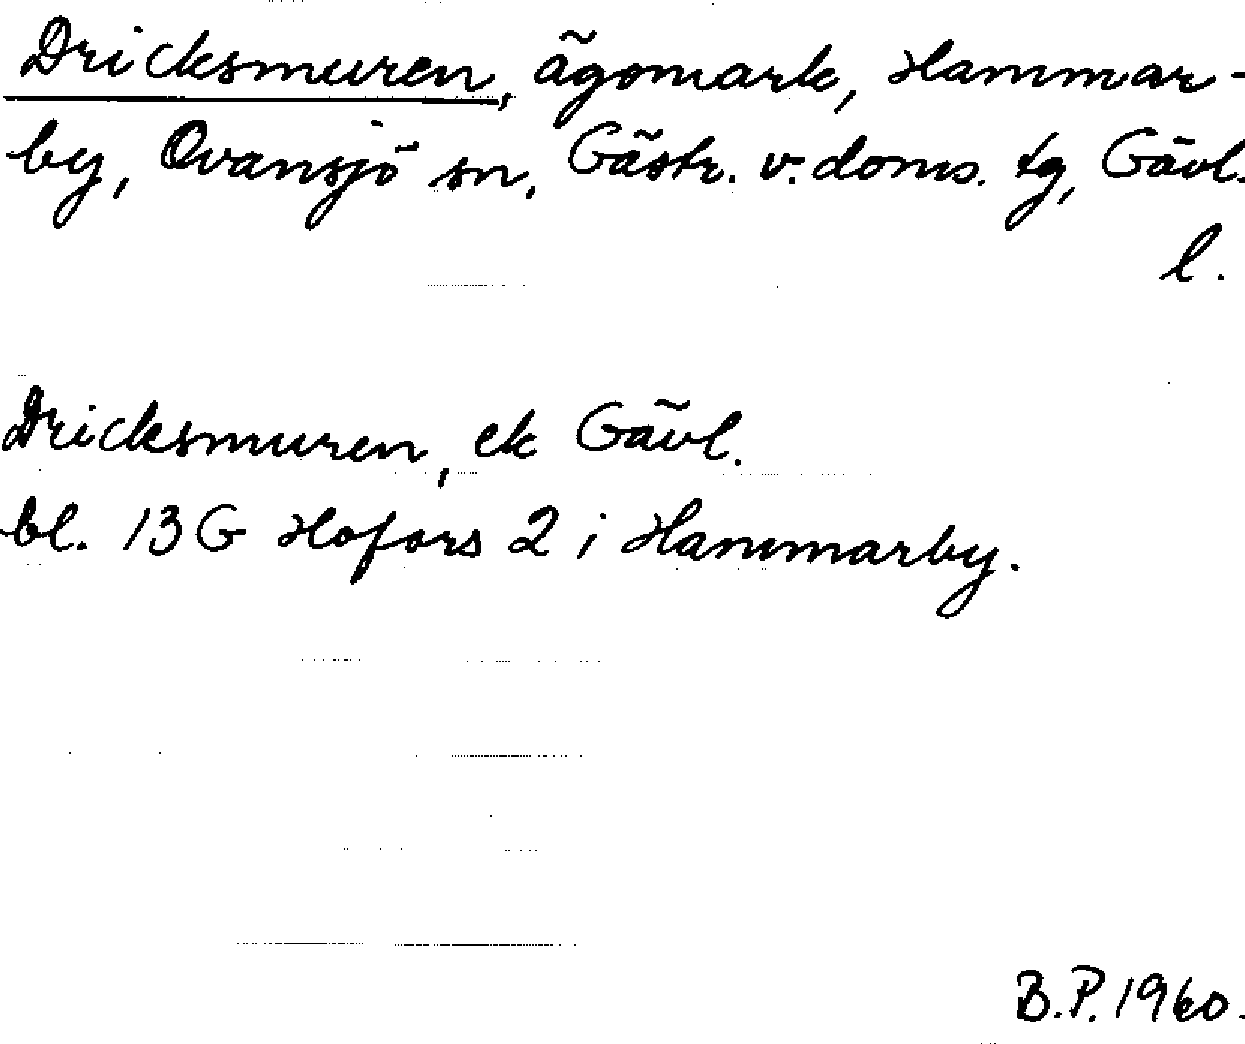 Dricksmuren, ägomark, Hammar-
by, Ovansjö sn, Gästr. v. doms. tg, Gävl.
l.
Dricksmuren, ek Gävl.
bl. 13 G Hofors 2 i Hammarby.
B.P. 1960.